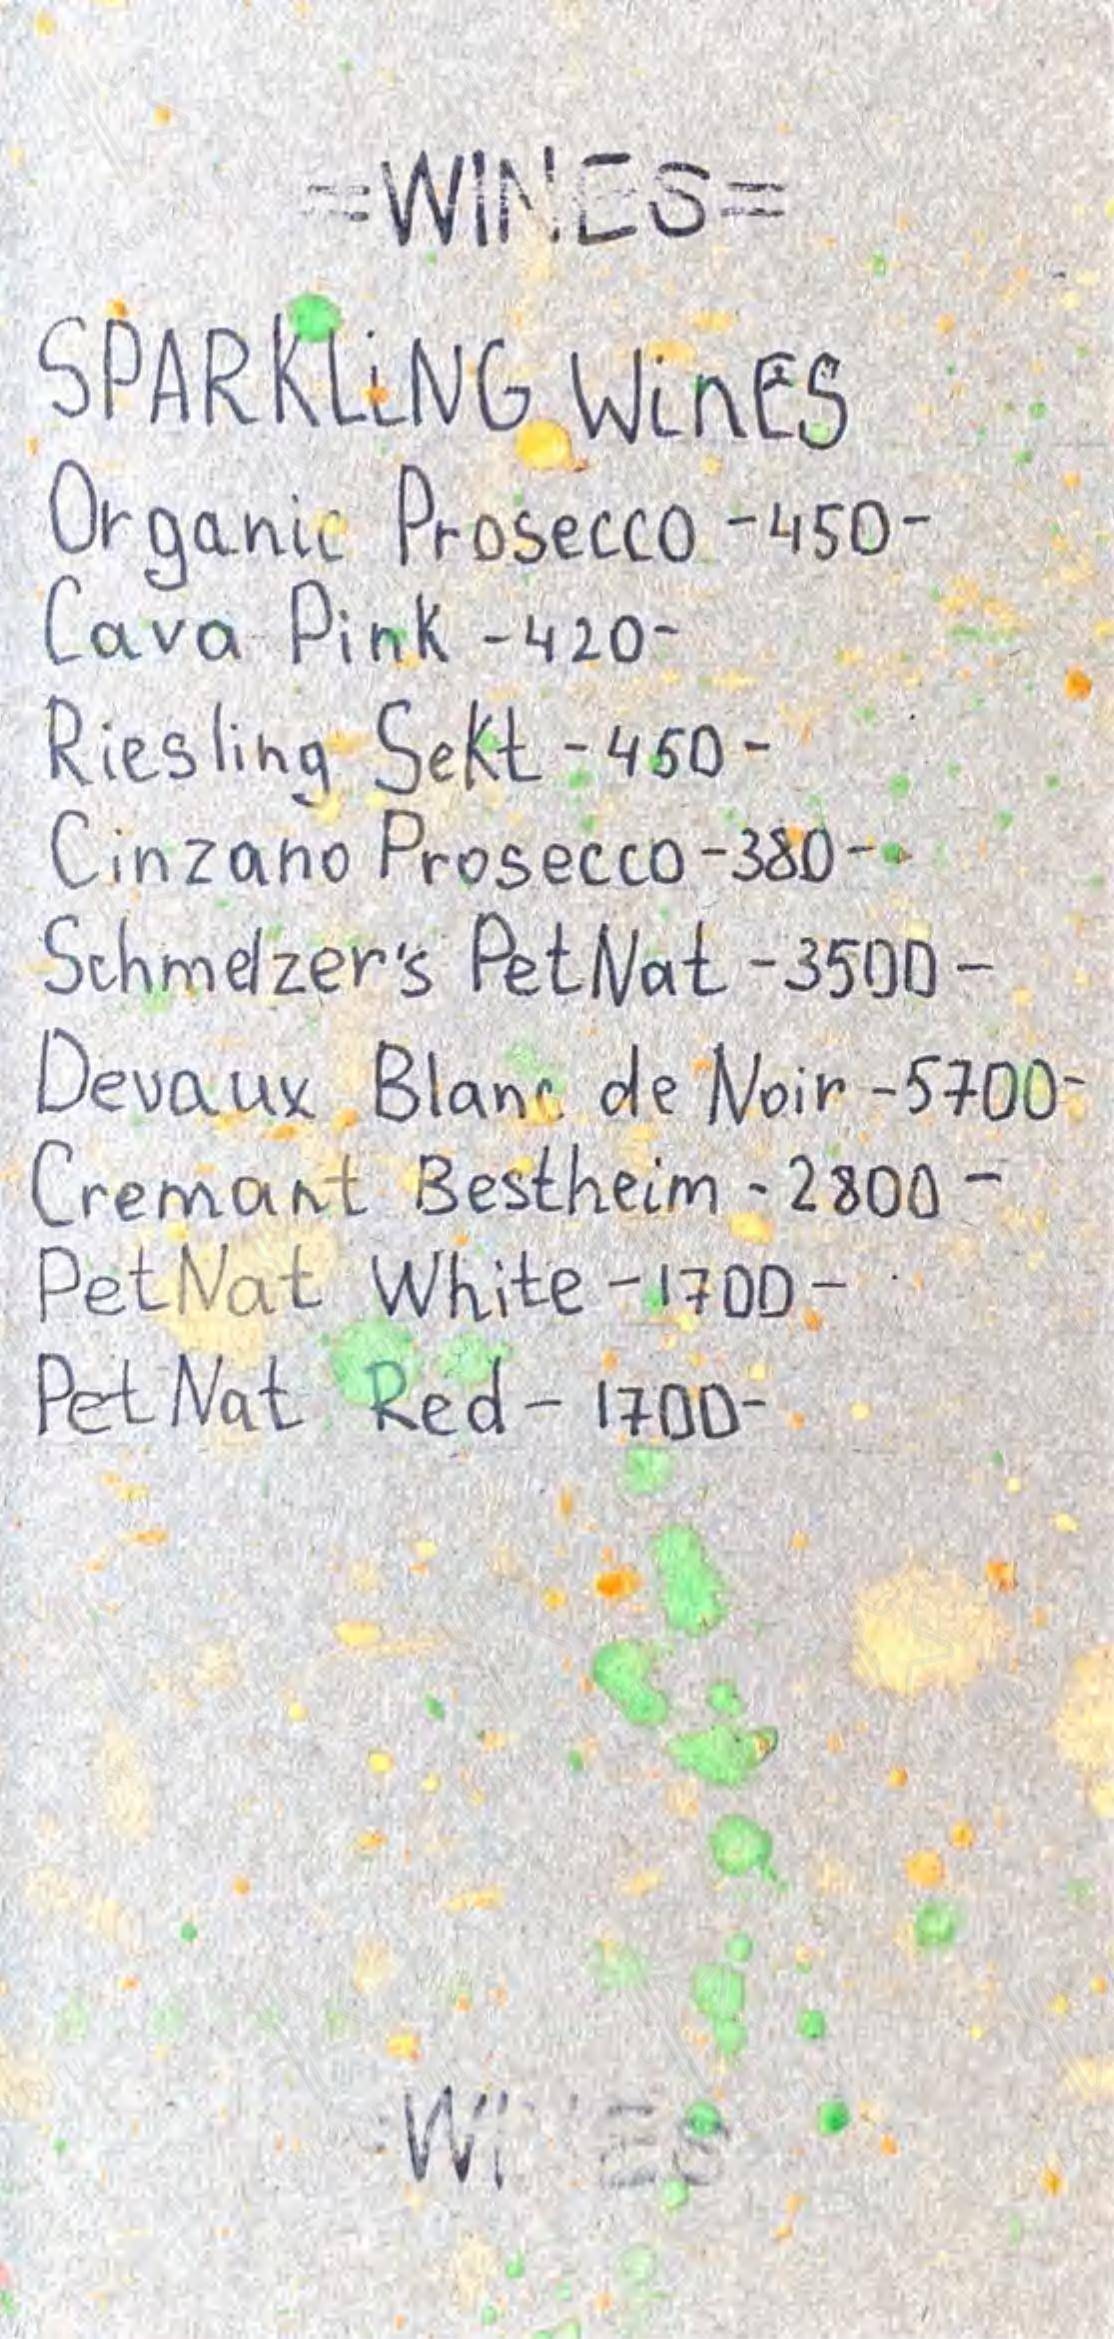 =WINES=
SPARKLiNG WinES
Organic Prosecco -450-
Cava Pink -420-
Riesling Sekt -450-
Cinzano Prosecco -380-
Schmelzer's PetNat -3500-
Devaux Blanc de Noir -5700-
Cremant Bestheim - 2800 -
PetNat White -1700-
PetNat Red - 1700-
WINES